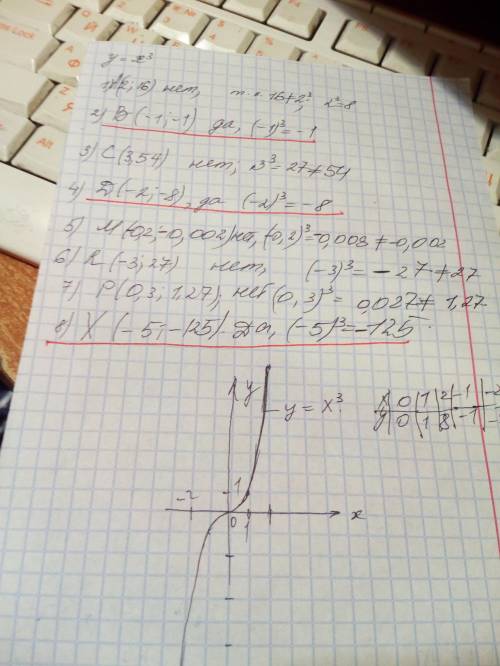 y = x³
1) A(2; 16) нет, т.к. 16≠2³; 2³=8
2) B(-1; -1) да, (-1)³=-1
3) C(3,54) нет; 3³=27≠54
4) D(-2; -8), да (-2)³=-8
5) M(-0,2; -0,002) нет, (-0,2)³=-0,008≠-0,002
6) R(-3; 27) нет, (-3)³=-27≠27
7) P(0,3; 1,27), нет (0,3)³= 0,027≠ 1,27
8) X(-5; -125) Да, (-5)³=-125
y
y = x³
x 0 1 2 -1 -2
y 0 1 8 -1
-2
1
0 1
x